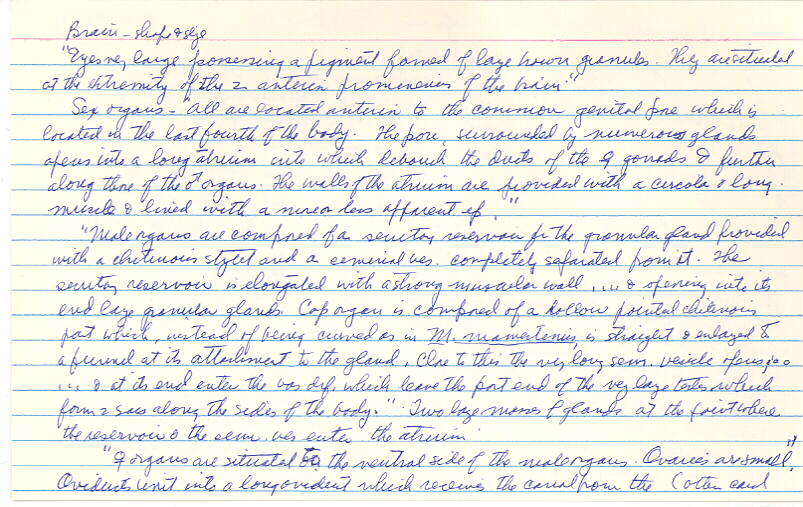 Brain - shape & size
"Eyes very large possessing a pigment formed of large brown granules. They are situated
at the extremity of the 2 anterior prominences of the brain."
Sex organs - "All are located anterior to the common genital pore which is
located in the last fourth of the body. The pore, surrounded by numerous glands
opens into a long atrium into which debouch the ducts of the ♀ gonads & further
along those of the ♂ organs. The walls of the atrium are provided with a circular & long.
muscle & lined with a more or less apparent ep."
"Male organs are composed of a secretory reservoir for the granular gland provided
with a chitinous stylet and a seminal ves. completely separated from it. The
secretory reservoir is elongated with a strong muscular wall .... & opening into its
end large granular glands. Cop organ is composed of a hollow pointed chitinous
part which, instead of being curved as in M. mamertinus, is straight & enlarged to
a funnel at its attachment to the gland. Close to this the very long sem. vesicle opens, ...
... & at its end enter the vas def. which leave the post end of the very large testes which
form 2 sacs along the sides of the body." Two large masses of glands at the point where
the reservoir & the sem. ves enter the atrium.
"♀ organs are situated to the ventral side of the male organs. Ovaries are small".
Oviducts unit into a long oviduct which receives the canal from the (other card